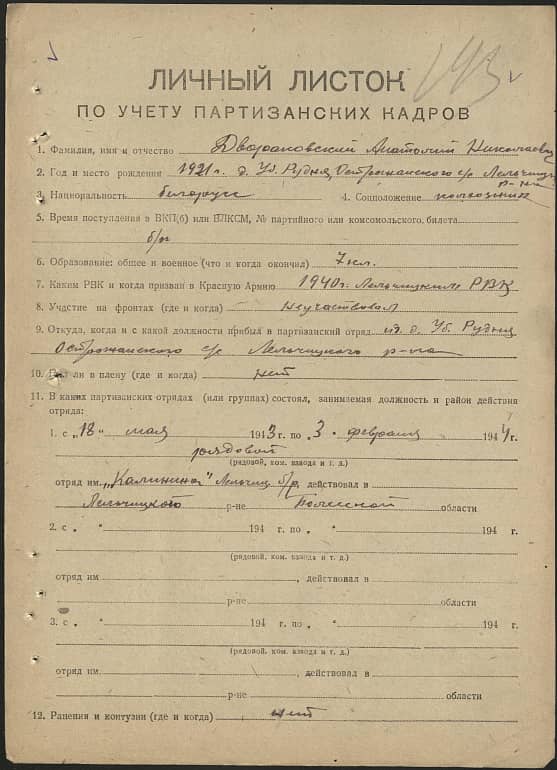 193
ЛИЧНЫЙ ЛИСТОК
ПО УЧЕТУ ПАРТИЗАНСКИХ КАДРОВ
1. Фамилия, имя и отчество Двораковский Анатолий Николаевич
2. Год и место рождения 1921 г. д. Уб. Рудня, Острожанского с/с Лельчицк.
р-на
3. Национальность белорус 4. Соцположение колхозник
5. Время поступления в ВКП(б) или ВЛКСМ, № партийного или комсомольского билета
б/п
6. Образование: общее и военное (что и когда окончил) 7 кл.
7. Каким РВК и когда призван в Красную Армию 1940 г. Лельчицким РВК
8. Участие на фронтах (где и когда) не участвовал
9. Откуда, когда и с какой должности прибыл в партизанский отряд из д. Уб. Рудня
Острожанского с/с Лельчицкого р-на
10. Был ли в плену (где и когда) нет
11. В каких партизанских отрядах (или группах) состоял, занимаемая должность и район действия
отряда:
1. с „18" мая 1943 г. по „3" февраля 1944 г.
рядовой
(рядовой, ком. взвода и т. д.)
отряд им. „Калинина" Лельчиц. б/р, действовал в
Лельчицкого р-не Полесской области
2. с „ " 194 г. по „ " 194 г.
(рядовой, ком. взвода и т. д.)
отряд им. , действовал в
р-не области
3. с „ " 194 г. по „ " 194 г.
(рядовой, ком. взвода и т. д.)
отряд им. , действовал в
р-не области
12. Ранения и контузии (где и когда) нет